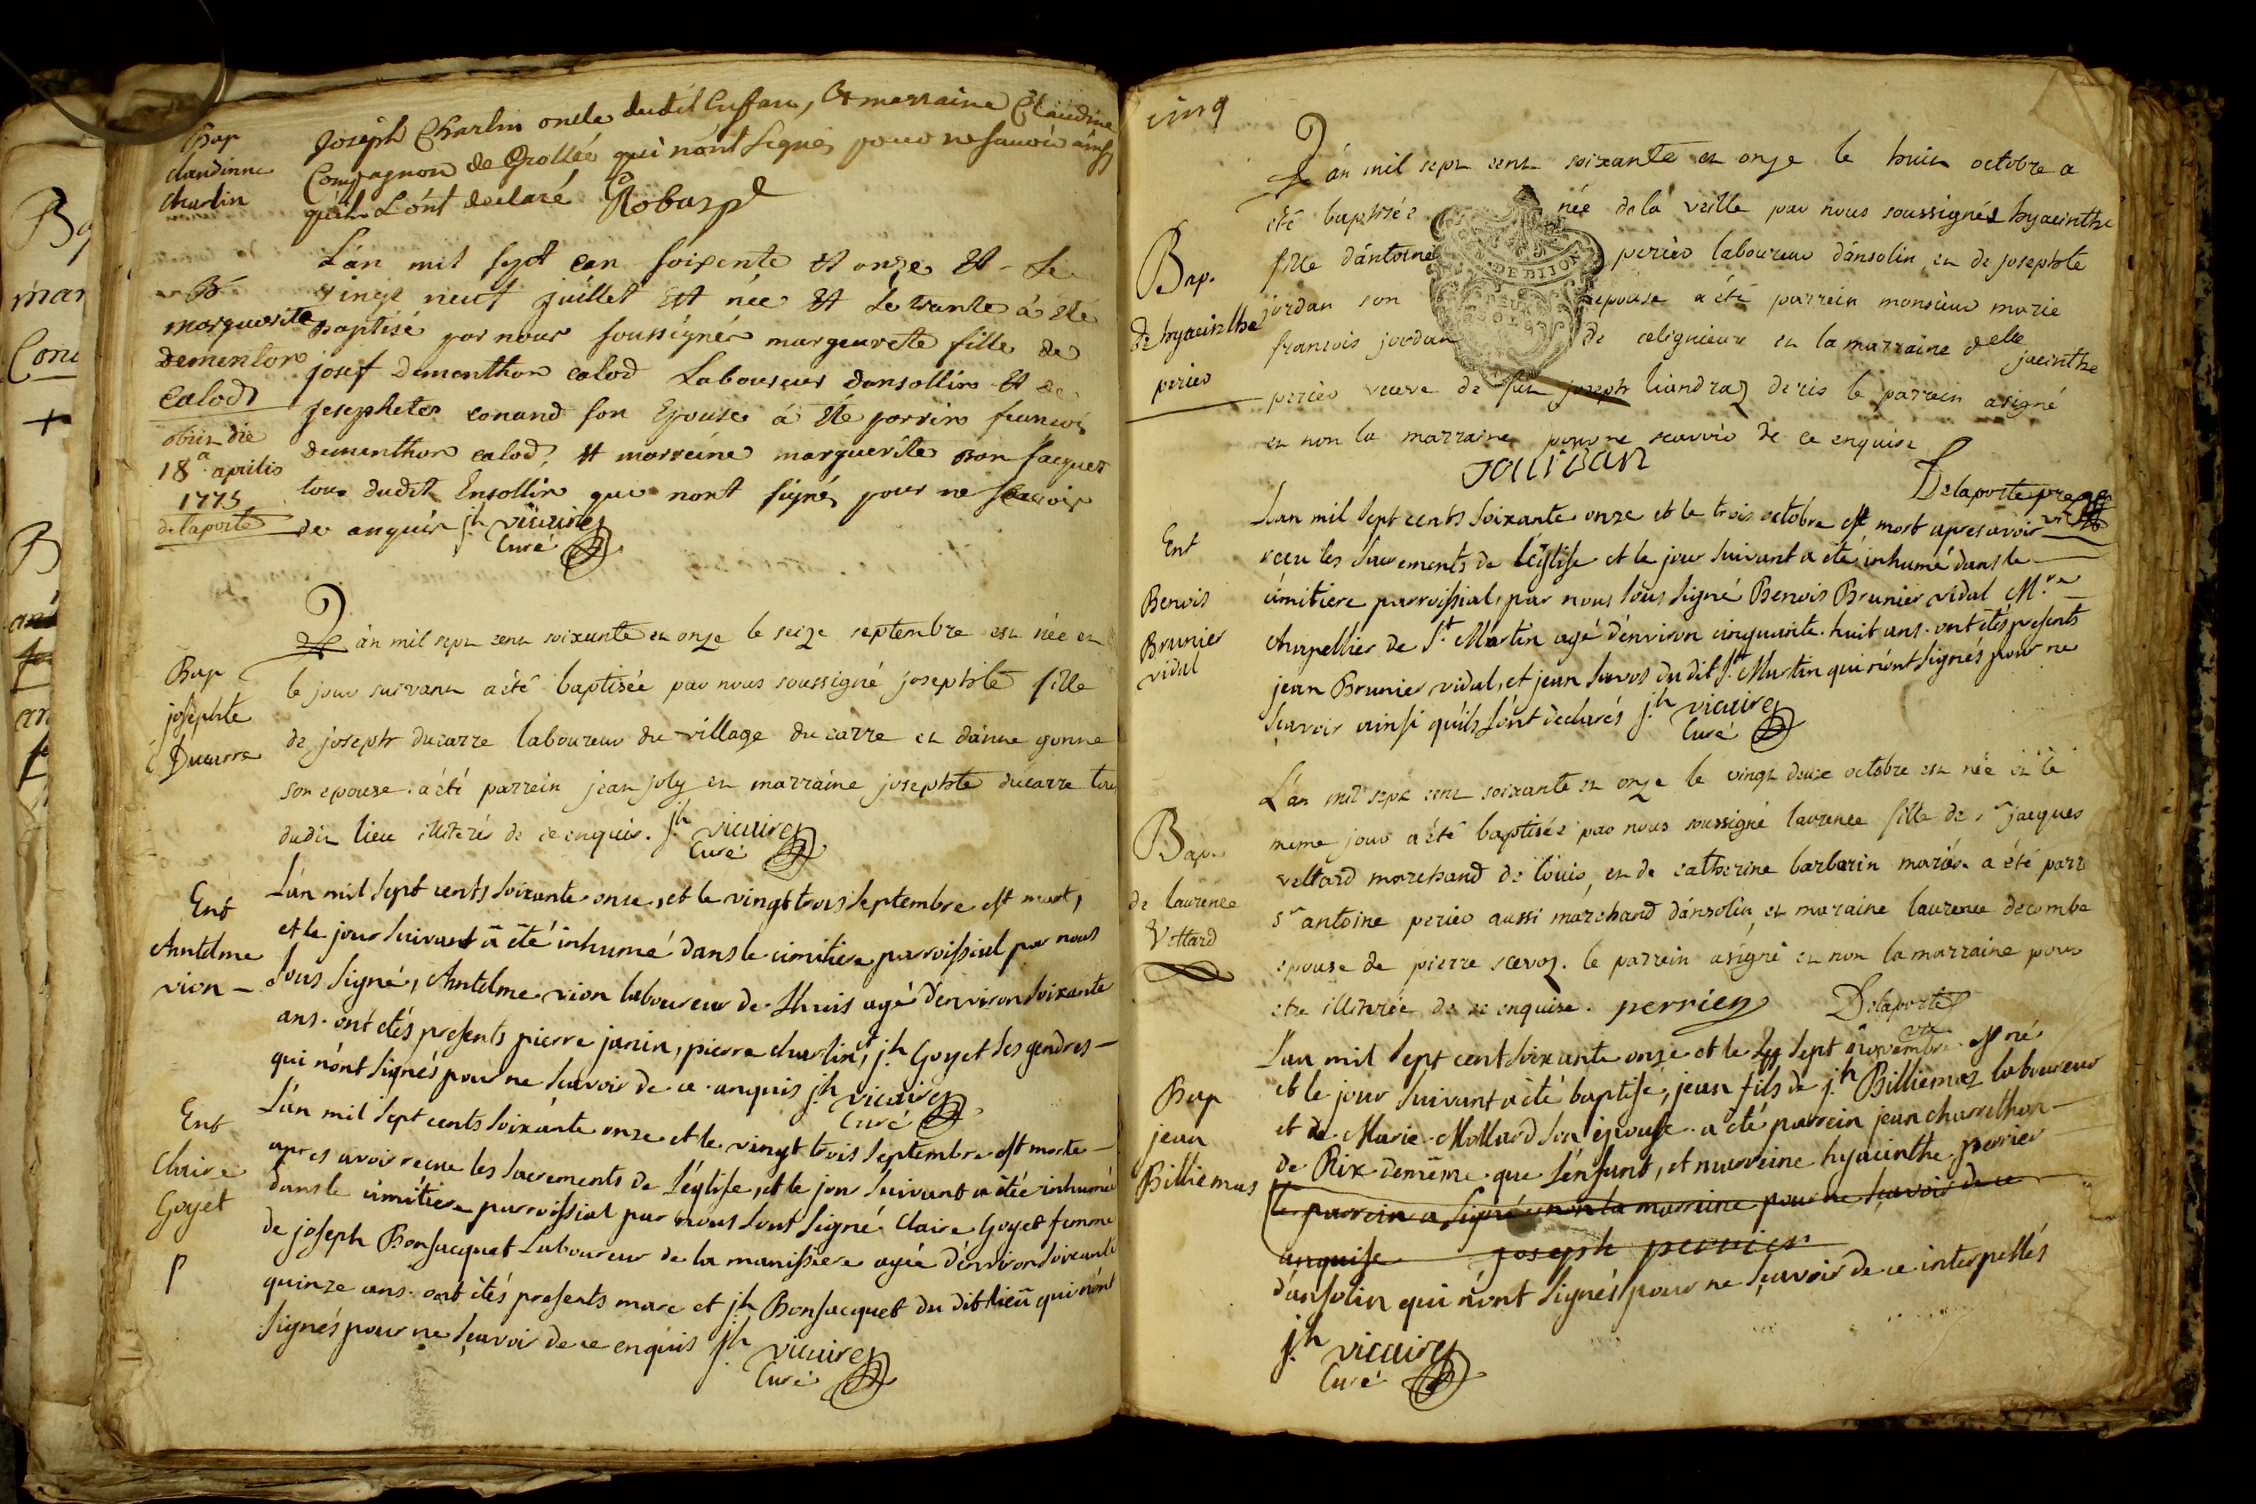 Bap
claudinne
charlin
joseph Charlin oncle dudit Enffan, Et marraine Claudine
Compagnon de Grollée qui n'ont Signés pour ne savoir ainsy
qu'ils L'ont declaré Robaz p
B
marguerite
dementon
calod
obiit die
18a aprilis
1775
delaporte
L'an mil sept cen soixente et onze et Le
vingt neuf juillet est née et Le trante à été
Baptisé par nous soussignés margeurete fille de
josef Dementhon calod Laboureur dansollin et de
josephete conand son Epouse á été parrin francois
dementhon calod, et marreine marguerite Bon jacquet
tous dudit Ensollin que nont signé pour ne scavoir
de anquis jh vicaire
Curé
Bap
josephte
Ducarre
L'an mil sept cent soixante et onze le seize septembre est née et
le jour suivant a été baptisée par nous soussigné josephte fille
de joseph ducarre laboureur du village du carre et d'anne gonne
son epouse. a été parrein jean joly et marraine josephte ducarre tous
dudit lieu illiterés de ce enquis. jh vicaire
Curé
Ent
Antelme
vion
L'an mil sept cents soixante onze, et le vingt trois septembre est mort,
et le jour suivant a été inhumé dans le cimitiere parroissial par nous
sous signé, Antelme vion laboureur de Lhuis agé d'environ soixante
ans. ont étés presents pierre janin, pierre charlin, et jh Goyet ses gendres
qui n'ont signés pour ne scavoir de ce anquis jh vicaire
Curé
Ent
Claire
Goyet
p
L'an mil sept cents soixante onze et le vingt trois septembre est morte
apres avoir recue les sacrements de l'église, et le jour suivant a étée inhumé
dans le cimitiere parroissial par nous sous signé Claire Goyet femme
de joseph Bonjacquet Laboureur de la manissiere agée d'environ soixante
quinze ans. ont étés presents marc et jh Bonjacquet du dit lieu qui n'ont
signés pour ne sçavoir de ce enquis jh vicaire
Curé
cinq
Bap.
de hyacinthe
perier
L'an mil sept cent soixante et onze le huit octobre a
eté baptisée née de la veille par nous soussignés hyacinthe
fille d'antoine perier laboureur d'ansolin, et de josephte
jordan son epouse a été parrein monsieur marie
francois jordan de celignieux et la marraine delle
jacinthe
perier veuve de feu joseph liandraz de rix le parrein a signé
et non la marraine pour ne scavoir de ce enquise
JOURDAN
Delaporte
Ent
Benois
Brunier
vidal
L'an mil sept cents soixante onze et le trois octobre est mort apres avoir
recu les sacrements de l'Eglise et le jour suivant a été inhumé dans le
cimitiere parroissial, par nous sous signé Benois Brunier vidal
Chapellier de St Martin agé d'environ cinquante huit ans. ont étés presents
jean Brunier vidal, et jean du dit St Martin qui n'ont signés pour ne
scavoir ainsi qu'ils l'ont declarés jh vicaire
Curé
Bap.
de laurence
Vettard
L'an mil sept cent soixante et onze le vingt deux octobre est née et le
meme jour a été baptisée par nous soussigné laurence fille de sr jacques
vettard marchand de louis, et de catherine barbarin mariés. a été parr
sr antoine perier aussi marchand d'ansolin, et maraine laurence decombe
epouse de pierre le parrein a signé et non la marraine pour
etre illiterée de ce enquise. perrier Delaporte
vic
Bap
jean
Billiemas
L'an mil sept cent soixante onze et le sept novembre est né
et le jour suivant a été baptisé, jean fils de jh Billiemaz laboureur
et de Marie Mollard son épouse. a été parrein jean charrethon
de Rix demême que l'enfant, et marreine hyacinthe perrier
le parrein a signé non la marraine pour ne sçavoir de ce
anquise joseph perrier
d'ansolin qui n'ont signés pour ne sçavoir de ce interpellés
jh vicaire
Curé